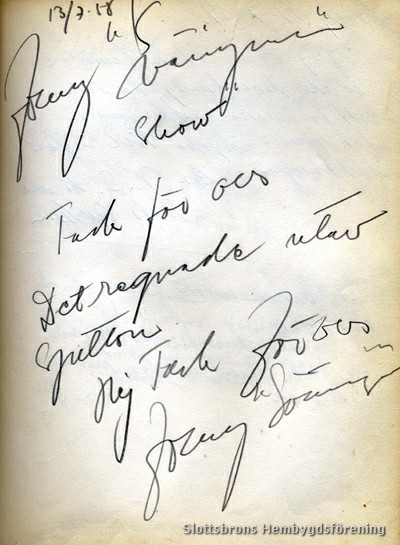 13/7-58
Jonny "Svängman"
Show"
Tack för oss
Det regnade utav
Spittow
Hej Tack För oss
Jonny "Sväng"
Slottsbrons Hembygdsförening